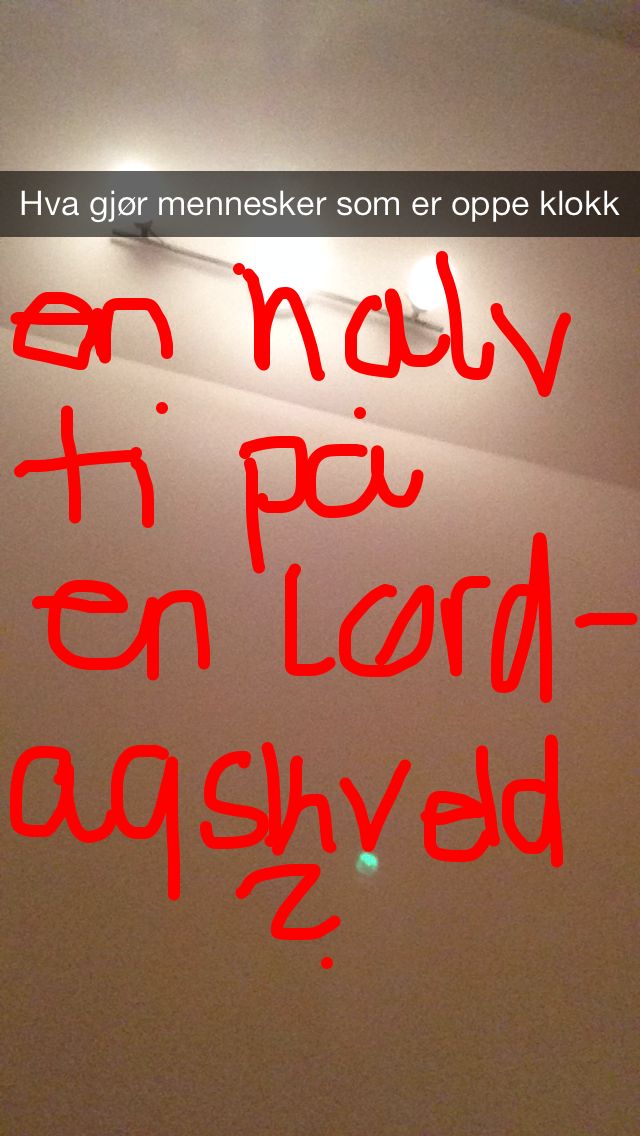 Hva gjør mennesker som er oppe klokk
en halv
ti på
en Lørd-
agskveld
?